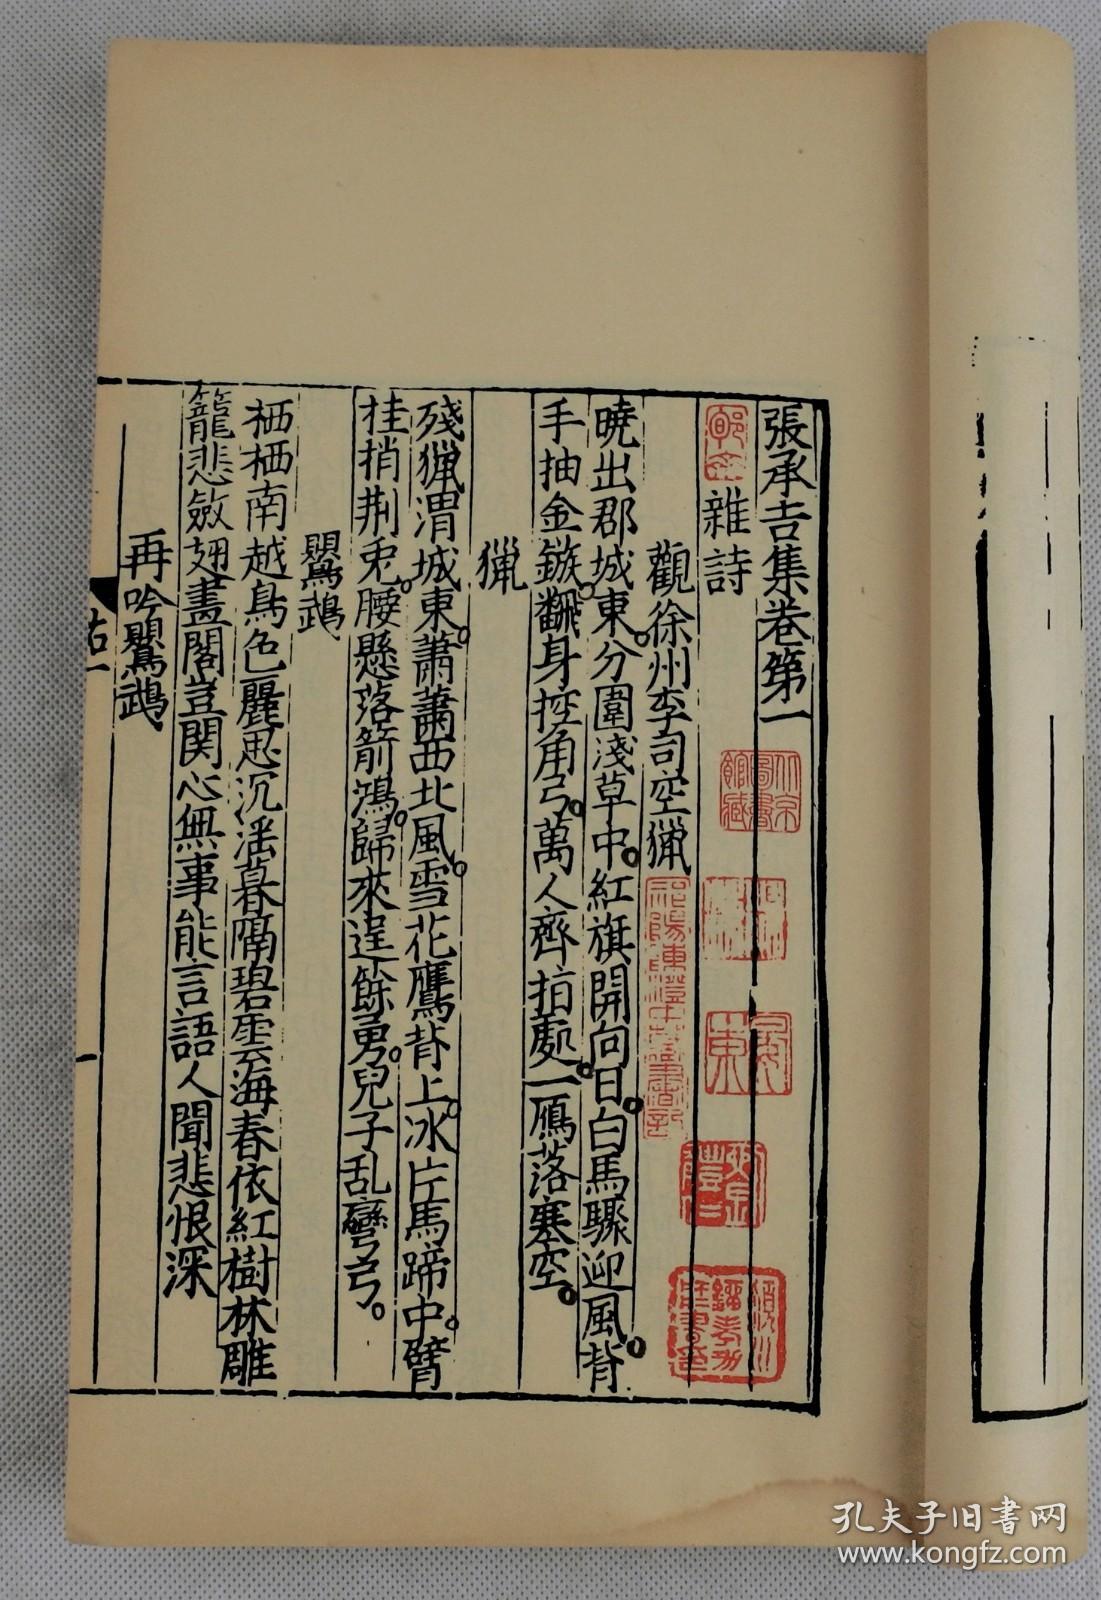 張承吉集卷第一
雜詩
觀徐州李司空獵
曉出郡城東。分圍淺草中。紅旗開向日。白馬驟迎風。背
手抽金鏃。飜身控角弓。萬人齊指處。一鴈落寒空。
獵
殘獵渭城東。蕭蕭西北風。雪花鷹背上。冰片馬蹄中。臂
挂捎荆兎。腰懸落箭鴻。歸來逞餘勇。兒子乱彎弓。
鸚鵡
栖栖南越鳥色麗思沉滛暮隔碧雲海春依紅樹林雕
籠悲斂翅畫閣豈関心無事能言語人聞悲恨深
再吟鸚鵡
一
北京圖書館藏
劉體仁
孔夫子旧书网
www.kongfz.com